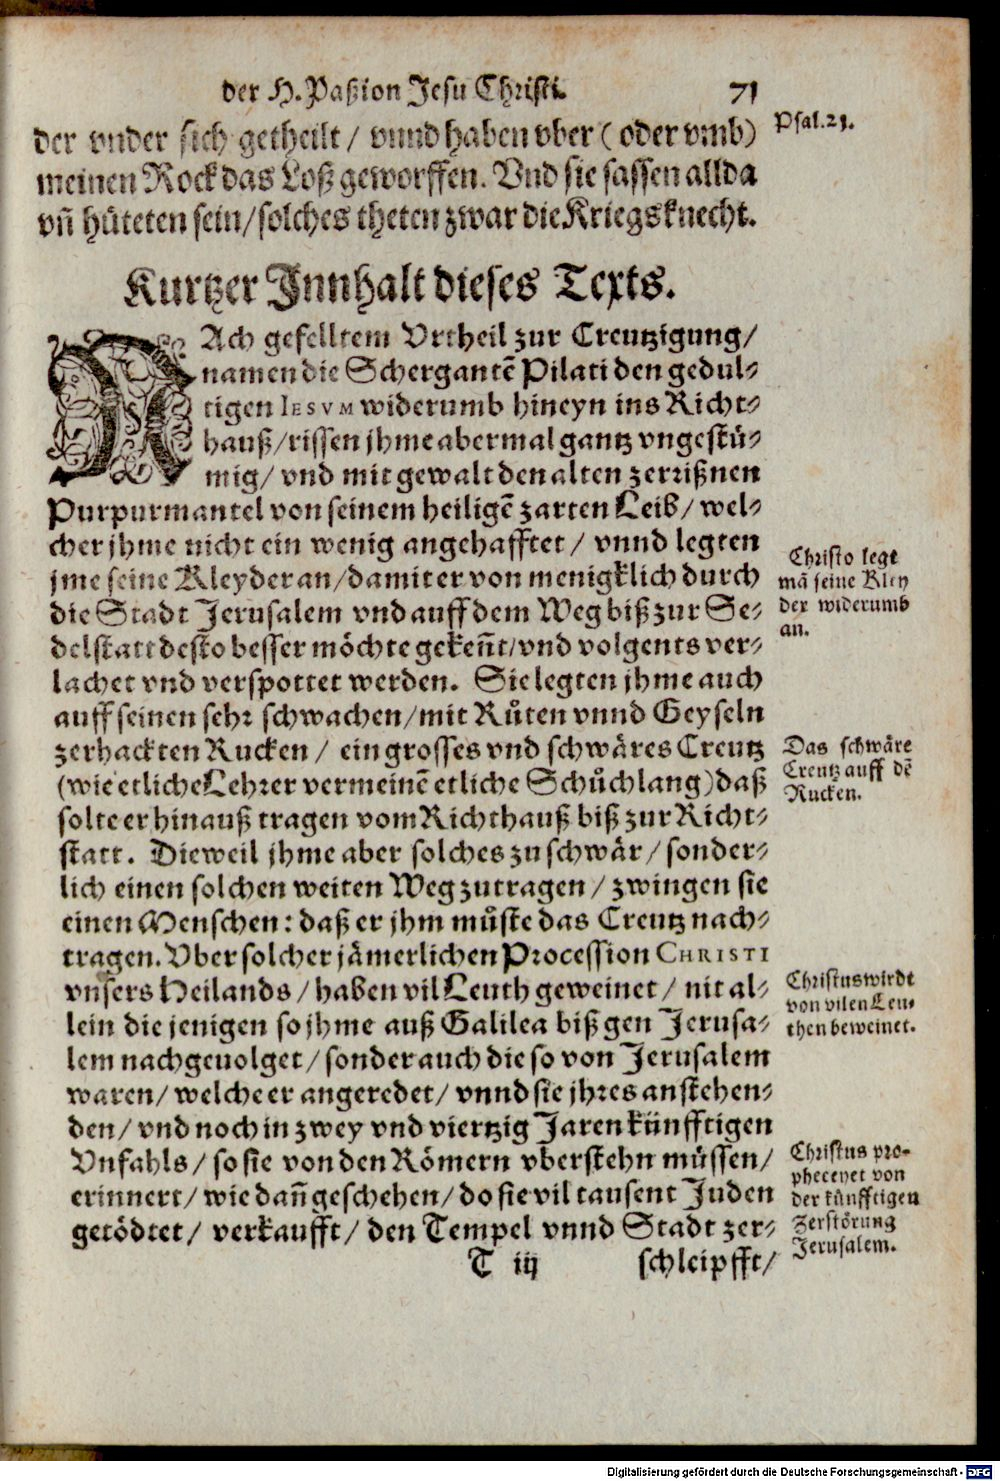 der H. Paßion Jesu Christi. 71
der vnder sich getheilt / vnnd haben vber ( oder vmb)
meinen Rock das Loß geworffen. Vnd sie sassen allda
vn̄ hůteten sein/solches theten zwar die Kriegsknecht.
Psal.21.
Kurtzer Innhalt dieses Texts.
NAch gefelltem Vrtheil zur Creutzigung/
namen die Schergantē Pilati den gedul⸗
tigen IESVM widerumb hineyn ins Richt⸗
hauß/rissen jhme abermal gantz vngestů⸗
mig/ vnd mit gewalt den alten zerrißnen
Purpurmantel von seinem heiligē zarten Leib/ wel⸗
cher jhme nicht ein wenig angehafftet / vnnd legten
jme seine Kleyder an/damit er von menigklich durch
die Stadt Jerusalem vnd auff dem Weg biß zur Se⸗
delstatt desto besser möchte gekeñt/vnd volgents ver⸗
lachet vnd verspottet werden. Sie legten jhme auch
auff seinen sehr schwachen/mit Růten vnnd Geyseln
zerhackten Rucken / ein grosses vnd schwäres Creutz
(wie etliche Lehrer vermeinē etliche Schůch lang) daß
solte er hinauß tragen vom Richthauß biß zur Richt⸗
statt. Dieweil jhme aber solches zu schwär/ sonder⸗
lich einen solchen weiten Weg zutragen / zwingen sie
einen Menschen: daß er jhm můste das Creutz nach⸗
tragen. Vber solcher jämerlichen Procession CHRISTI
vnsers Heilands / haben vil Leuth geweinet / nit al⸗
lein die jenigen so jhme auß Galilea biß gen Jerusa⸗
lem nachgeuolget/ sonder auch die so von Jerusalem
waren/ welche er angeredet/ vnnd sie jhres anstehen⸗
den/ vnd noch in zwey vnd viertzig Jaren künfftigen
Vnfahls / so sie von den Römern vberstehn müssen/
erinnert/ wie dañ geschehen/ do sie vil tausent Juden
getödtet/ verkaufft/ den Tempel vnnd Stadt zer⸗
T iij schleipfft/
Christo legt
mā seine Kley
der widerumb
an.
Das schwäre
Creutz auff dē
Rucken.
Christus wirdt
von vilen Leu⸗
then beweinet.
Christus pro⸗
pheceyet von
der künfftigen
Zerstörung
Jerusalem.
Digitalisierung gefördert durch die Deutsche Forschungsgemeinschaft - DFG